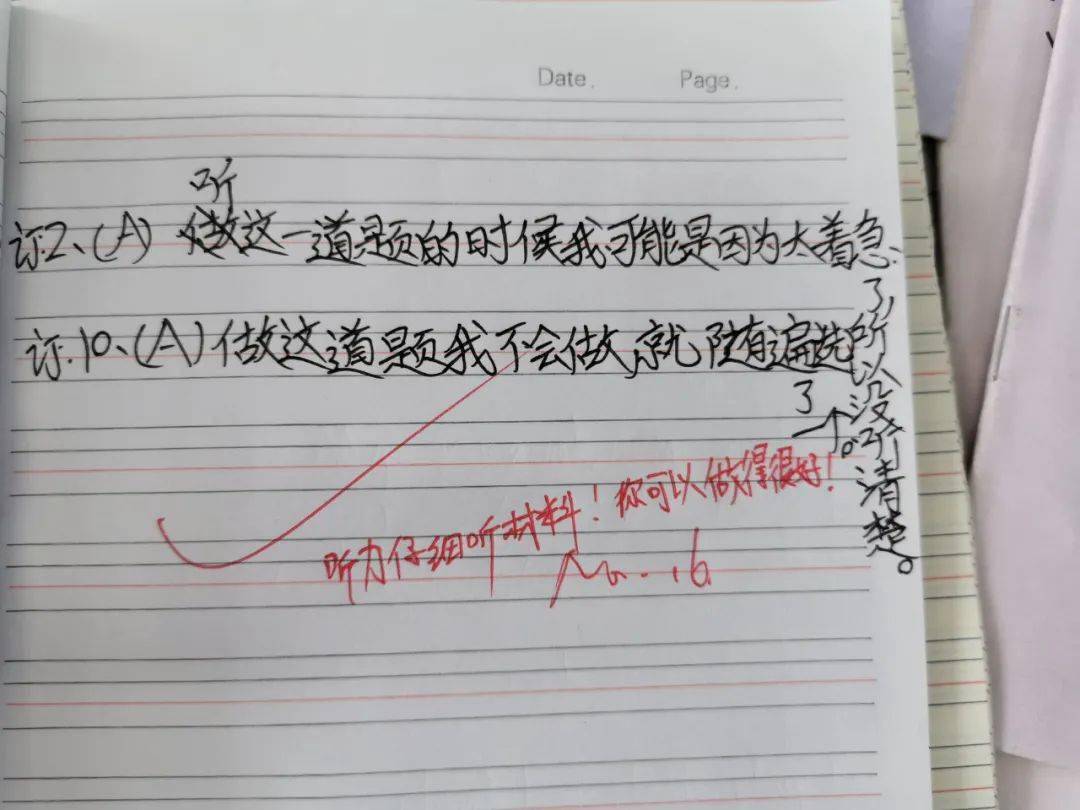 Date. Page.
听
订2、(A) 做这一道题的时候我可能是因为太着急
了,所以没听清楚。
订.10、(A)做这道题我不会做,就随遍选
了。
听力仔细听材料!你可以做得很好!